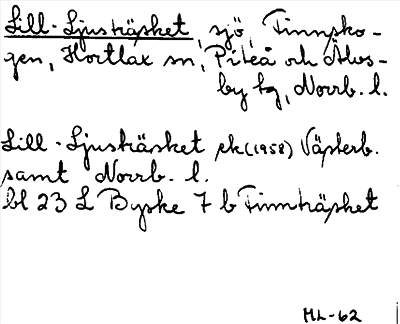 Lill-Ljusträsket, sjö, Finnsko-
gen, Hortlax sn, Piteå och Älvs-
by tg, Norrb. l.
Lill-Ljusträsket ek (1958) Västerb.
samt Norrb. l.
bl 23 L Byske 7 b Finnträsket
ML-62